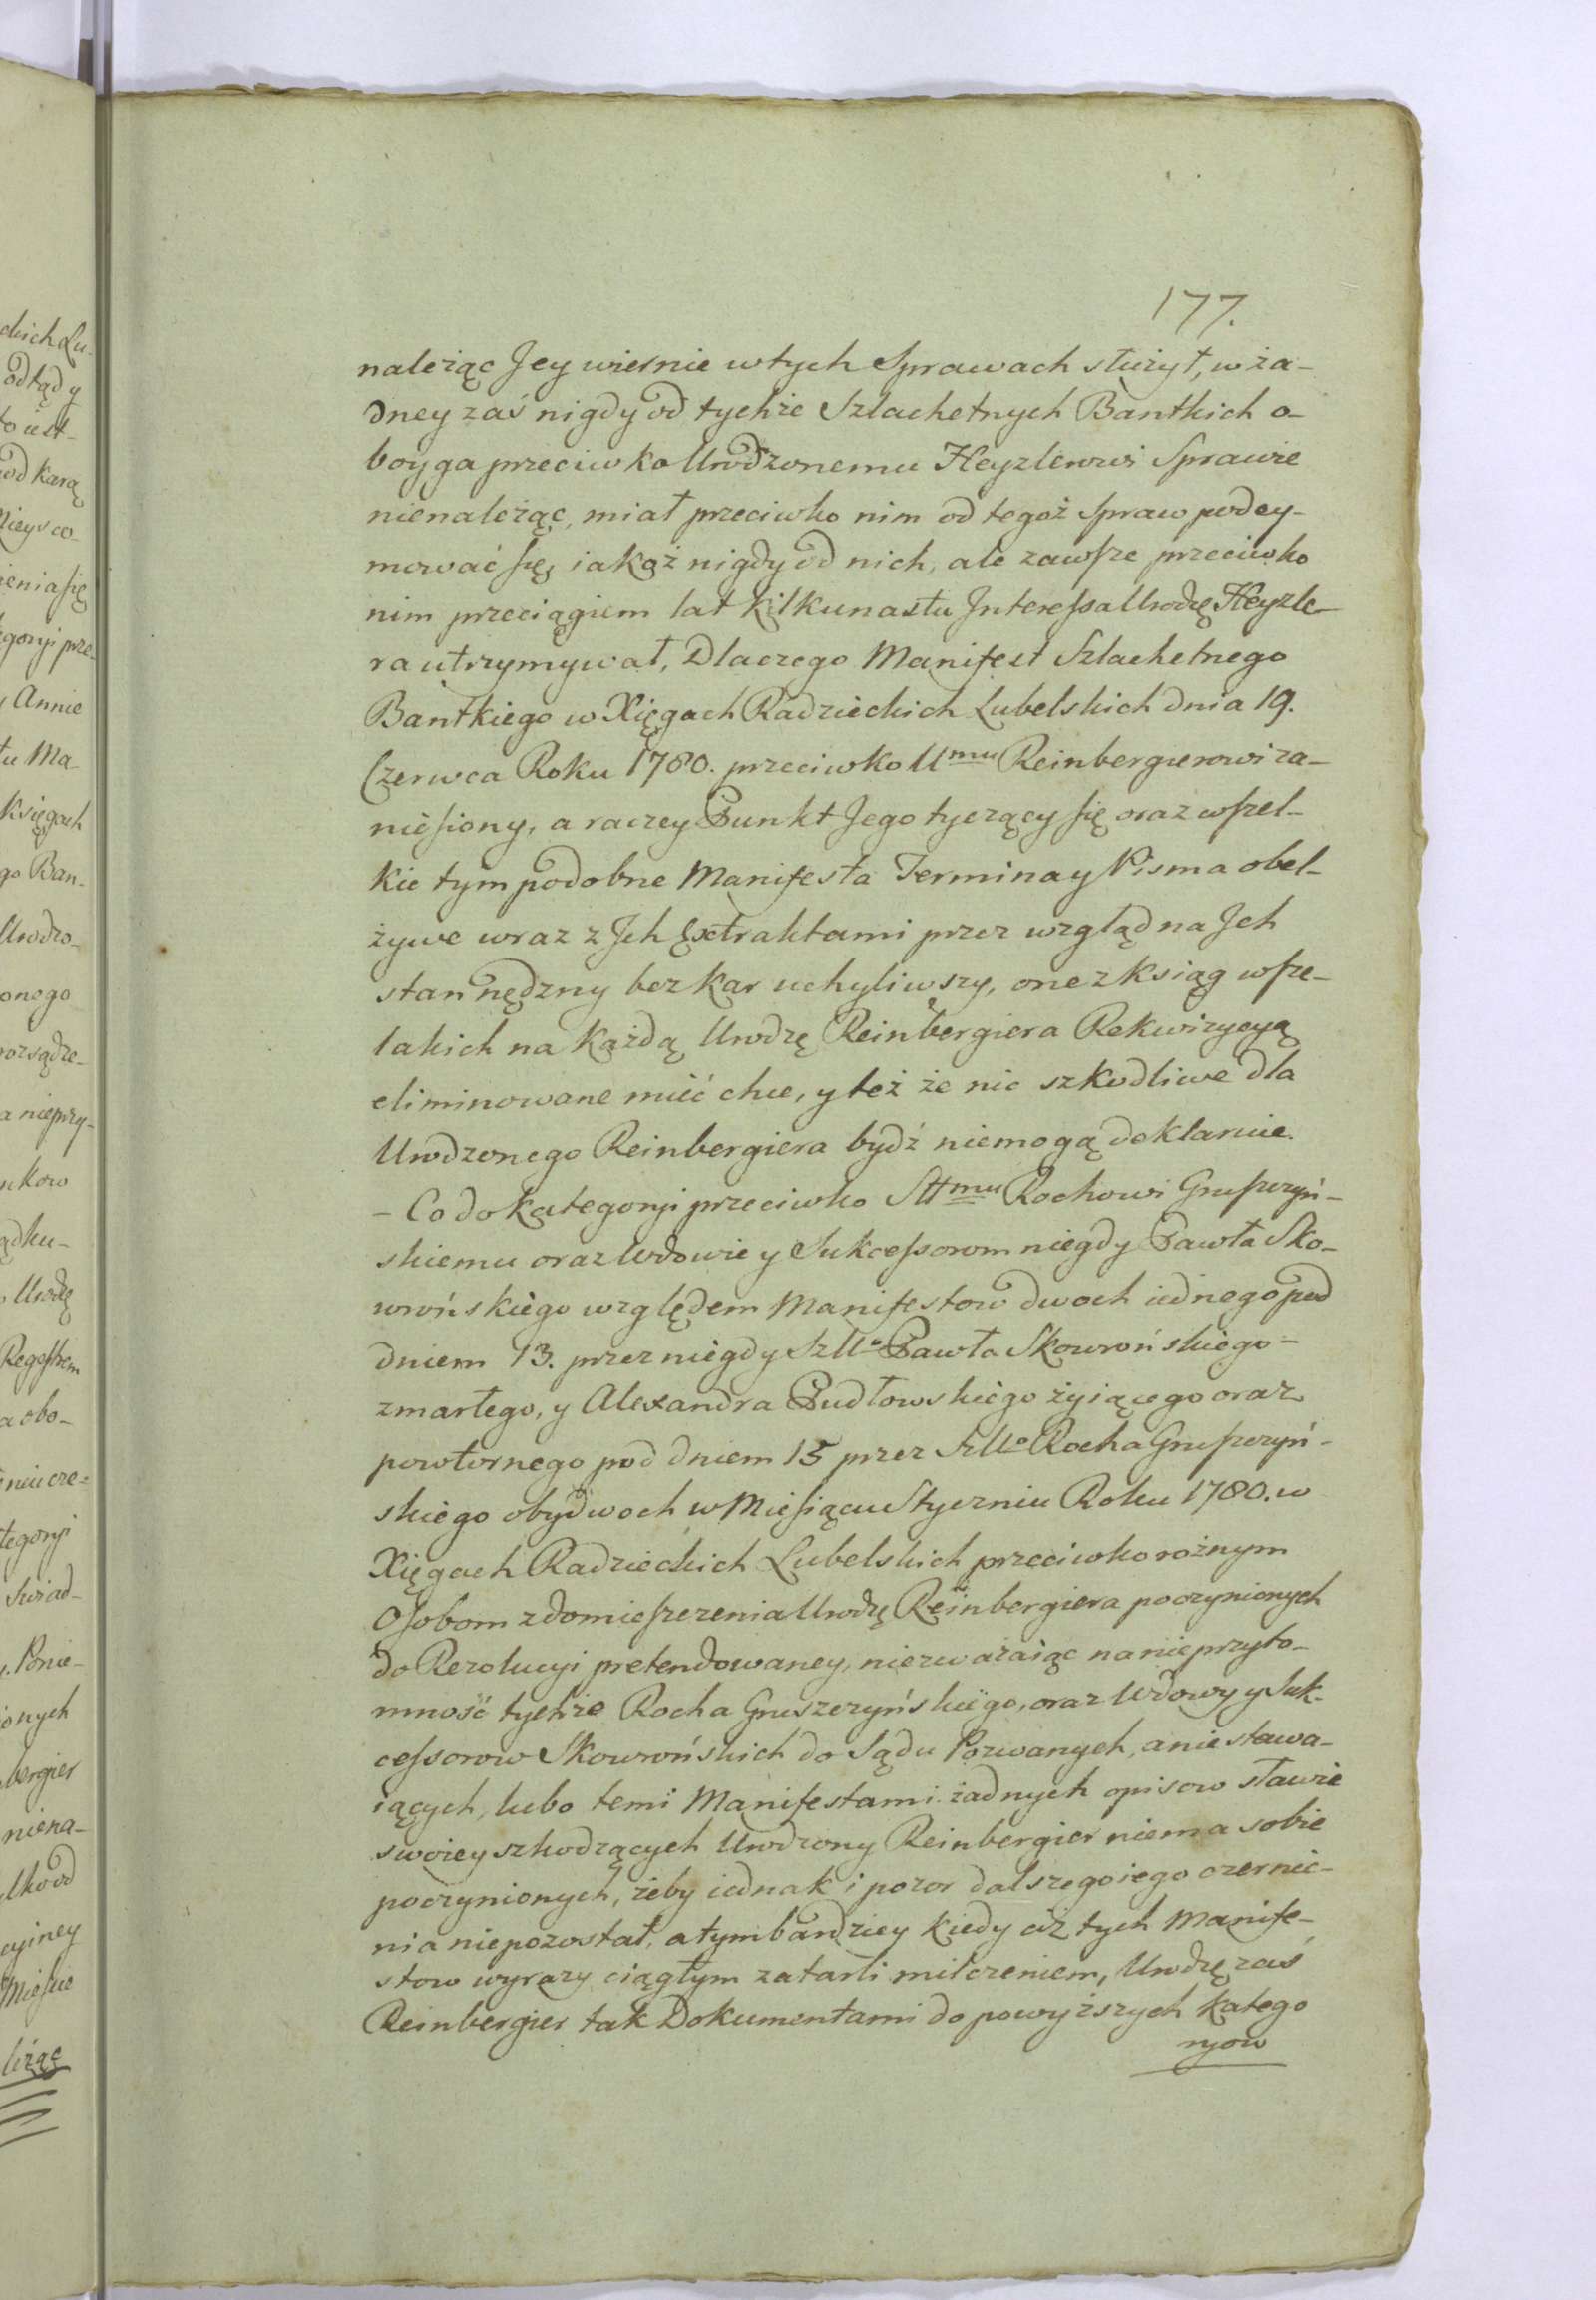 177.
należąc Jey wiernie wtych Sprawach służył, w ża-
dney zaś nigdy od tychże Szlachetnych Bantkich o-
boyga przeciwko Urodzonemu Heyzlerowi Sprawie
nienależąc, miał przeciwko nim od tegoż Spraw podey-
mować się, iakoż nigdy od nich, ale zawsze przeciwko
nim przeciągiem lat kilkunastu Interessa Urodzę Heyzle-
ra utrzymywał, Dlaczego Manifest Szlachetnego
Bantkiego w Xięgach Radzieckich Lubelskich dnia 19.
Czerwca Roku 1780. przeciwko Umu Reinbergierowi za-
niesiony, a raczey Punkt Jego tyczący się oraz wszel-
kie tym podobne Manifesta Termina y Pisma obel-
żywe wraz z Jch Extraktami przez wzgląd na Jch
stan nędzny bez kar uchyliwszy, one z ksiąg wsze-
lakich na każdą Urodzę Reinbergiera Rekwizycyą
eliminowane mieć chce, y też że nic szkodliwe dla
Urodzonego Reinbergiera bydź niemogą deklaruie.
- Co do kategoryi przeciwko Sttmu Rochowi Gruszczyń-
skiemu oraz Wdowie y Sukcessorom niegdy Pawła Sko-
wrońskiego względem Manifestow dwoch iednego pod
dniem 13. przez niegdy Szllo Pawła Skowrońskiego -
zmarłego, y Alexandra Pudłowskiego żyiącego oraz
powtornego pod dniem 15 przez Szllo Rocha Gruszczyń-
skiego obydwoch w Miesiącu Styczniu Roku 1780. w
Xięgach Radzieckich Lubelskich przeciwko rożnym
Osobom z domieszczenia Urodzę Reinbergiera poczynionych
do Rezolucyi pretendowaney, niezważaiąc na nieprzyto-
mność tychże Rocha Gruszczyńskiego, oraz Wdowy y Suk-
cessorow Skowrońskich do Sądu Pozwanych, a nie stawa-
iących, lubo temi Manifestami żadnych opisow sławie
swoiey szkodzących Urodzony Reinbergier niema sobie
poczynionych, żeby iednak i pozor dalszego iego czernie-
nia niepozostał, a tym bardziey kiedy ciż tych Manife-
stow wyrazy ciągłym zatarli milczeniem, Urodzę zaś
Reinbergier tak Dokumentami do powyższych katego
ryow